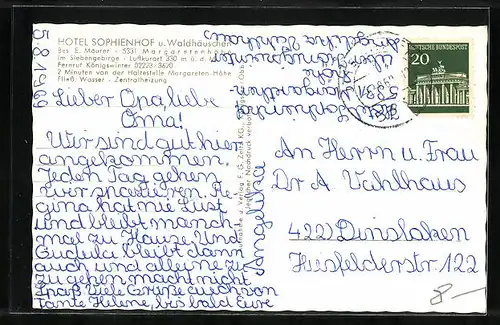 HOTEL SOPHIENHOF u. Waldhäuschen
Bes. E. Maurer - 5331 Margaretenhöhe
im Siebengebirge - Luftkurort 330 m ü. d. M.
Fernruf Königswinter 02223-3620
2 Minuten von der Haltestelle Margareten-Höhe
Fließ. Wasser - Zentralheizung
5.8.1969
Lieber Opa, liebe
Oma!
Wir sind gut hier
angekommen.
Jeden Tag gehen
wir spazieren. Re
gina hat nie Lust
und bleibt manch
mal zu Hause. Und
Gudula bleibt dann
auch und alleine zu
zu gehen macht nicht
Spaß. Viele Grüße auch von
Tante Helene, bis bald Eure
Angelika
DEUTSCHE BUNDESPOST
20
An Herrn u. Frau
Dr A Vahlhaus
422) Dinslaken
Hiesfelderstr 122
8-